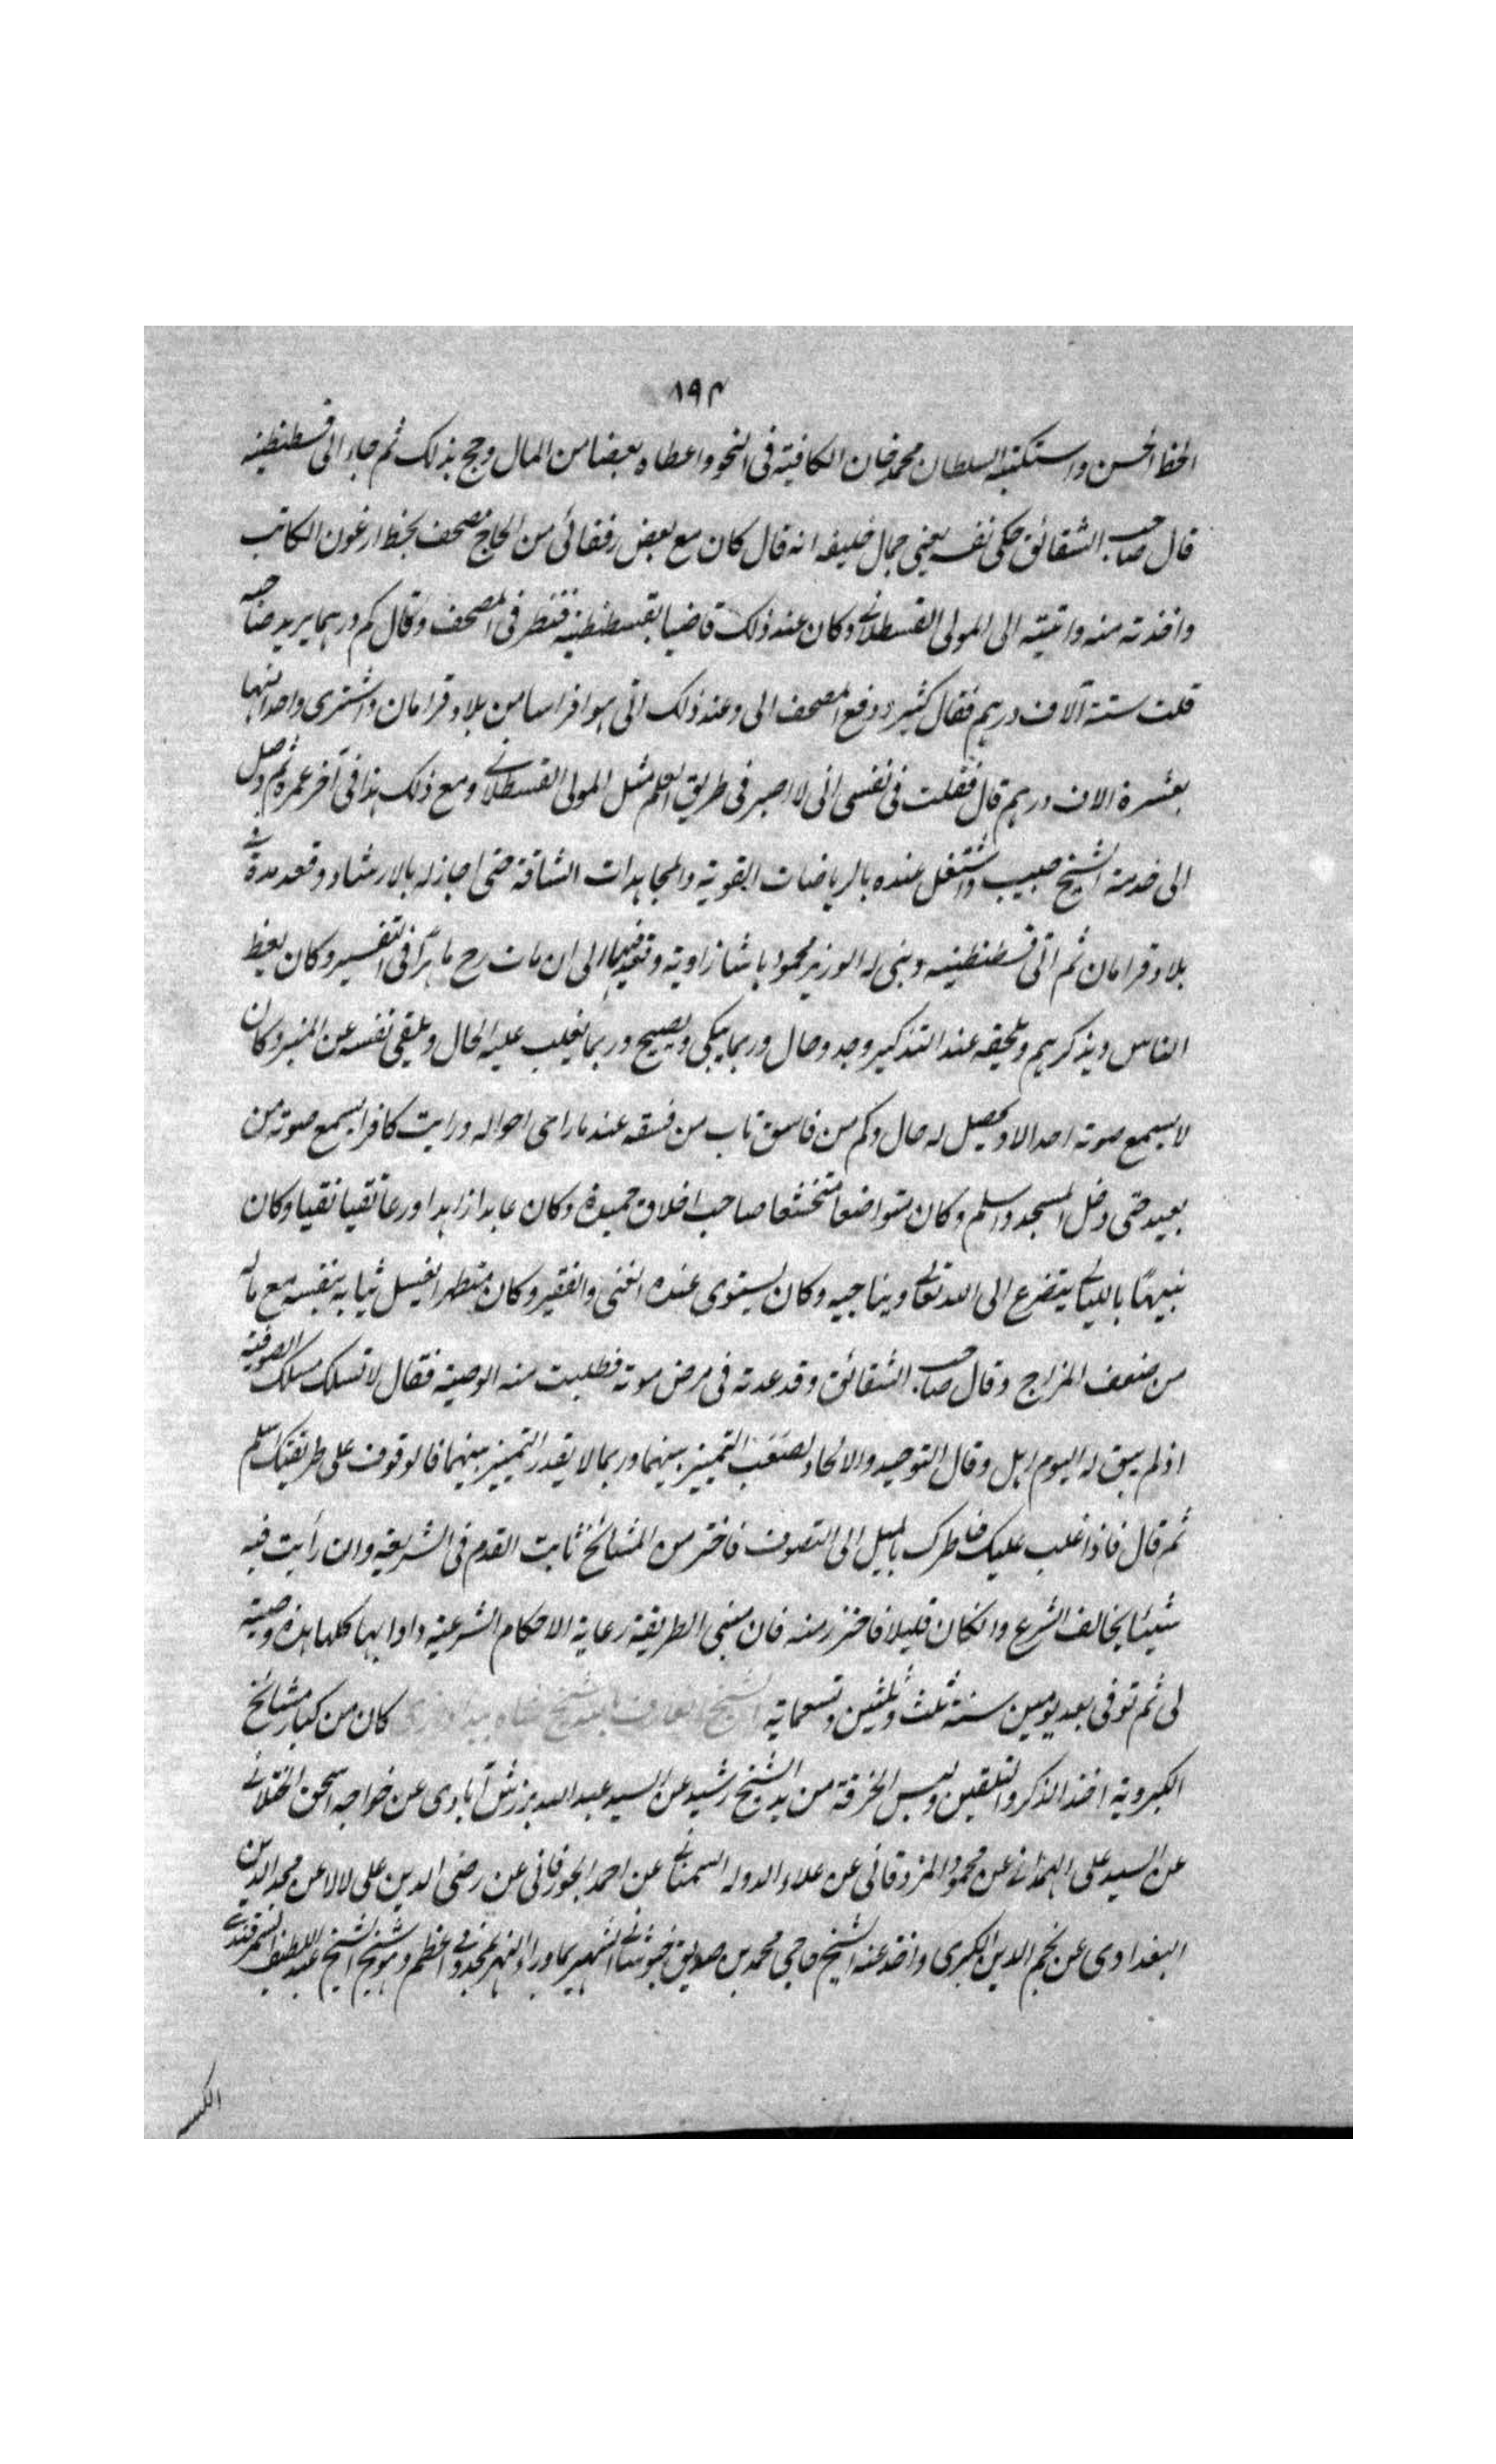 ١٩٤
الخط الحسن واستكتبه السلطان محمد خان الكافية فى النحو واعطاه بعضا من المال وحج بذلك ثم جاء الى قسطنطنيه
قال صاحب الشقائق حكى نفسه يعنى جمال خليفه انه قال كان مع بعض رفقائى من الحاج مصحف بخط ارغون الكاتب
واخذته منه واتيته الى المولى القسطلانى وكان عند ذلك قاضيا بقسطنطنيه فنظر فى المصحف وقال كم درهما يريد صاحبه
قلت ستة آلاف درهم فقال كثير ودفع المصحف الى وعند ذلك اتى هو افراسا من بلاد قرامان واشترى واحدا منها
بعشرة الاف درهم قال فقلت فى نفسى انى لا اصبر فى طريق العلم مثل المولى القسطلانى ومع ذلك هذا فى آخر عمره ثم وصل
الى خدمة الشيخ حبيب واشتغل عنده بالرياضات القوية والمجاهدات الشاقة حتى اجاز له بالارشاد وقعد مدة فى
بلاد قرامان ثم اتى قسطنطنيه وبنى له الوزير محمود باشا زاوية وقعد فيها الى ان مات رح ماهرًا فى التفسير وكان يعظ
الناس ويذكرهم ويلحقه عند التذكير وجد وحال وربما يبكى ويصيح وربما يغلب عليه الحال ويلقى نفسه عن المنبر وكان
لا يسمع صوته احد الا ويحصل له حال وكم من فاسق تاب من فسقه عند ما راى احواله ورايت كافرا يسمع صوته من
بعيد حتى دخل المسجد واسلم وكان متواضعا متخشعا صاحب اخلاق حميدة وكان عابدا زاهدا ورعا تقيا نقيا وكان
بالليالى يتضرع الى الله تعالى ويناجيه وكان يستوى عنده الغنى والفقير وكان متطهرا يغسل ثيابه بنفسه مع ماله
من ضعف المزاج وقال صاحب الشقائق وقد عدته فى مرض موته فطلبت منه الوصية فقال لا تسلك مسلك الصوفية
اذ لم يبق له اليوم اهل وقال التوحيد والالحاد يصعب التمييز بينهما وربما لا يقدر التمييز بينهما فالوقوف على طريقتك اسلم
ثم قال فاذا غلب عليك خاطرك بالميل الى التصوف فاختر من المشائخ ثابت القدم فى الشريعة وان رأيت فيه
شيئا يخالف الشرع وانكان قليلا فاحترز منه فان مبنى الطريقة رعاية الاحكام الشرعية وادابها كلها هذه وصيته
لى ثم توفى بعد يومين سنة ثلث وثلثين وتسعماية الشيخ العارف بالله شيخ شاه كان من كبار مشائخ
الكبروية اخذ الذكر والتلقين ولبس الخرقة من يد الشيخ رشيد عن السيد عبد الله برزش آبادى عن خواجه اسحق الختلانى
عن السيد على الهمدانى عن محمود المزدقانى عن علاء الدوله السمنانى عن احمد الجورفانى عن رضى الدين على لالا عن مجد الدين
البغدادى عن نجم الدين الكبرى واخذ عنه الشيخ حاجى محمد بن صديق خبوشانى الشهير بما وراء النهر بمخدومى اعظم وهو شيخ الشيخ عبد اللطيف السمرقندى